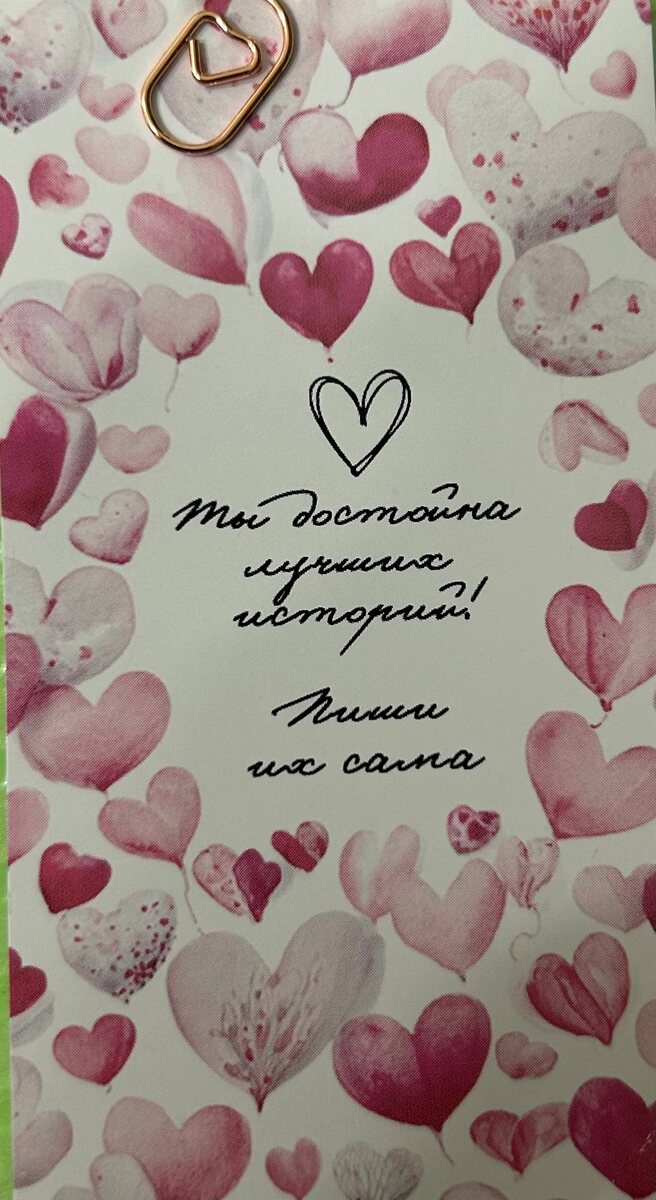 Ты достойна
лучших
историй!
Пиши
их сама